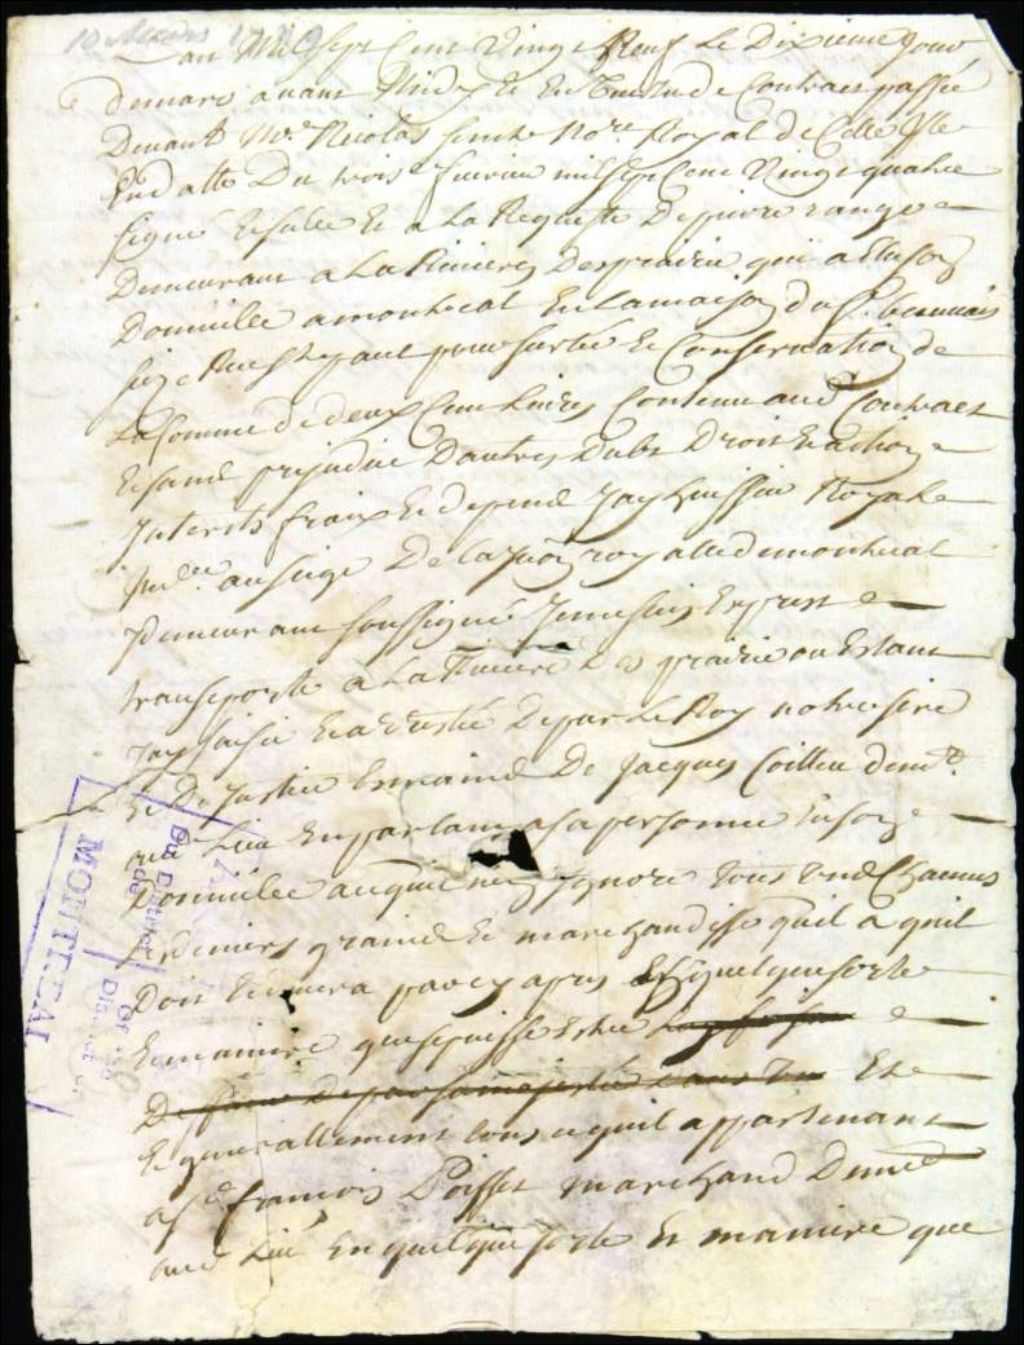 10 Mars 1729
Lan Mil sept Cent Vingt Neuf Le Dixieme Jour
de mars avant Midy Et En Vertu de Contract passée
Devant Me. Nicolas senet Nore. Royal de Cette Isle
En datte Du trois fevrier mil sept Cent Vingt quatre
signé Et sellé Et a La Requeste De pierre
Demeurant a La Riviere Des prairie qui a Elu son
Domicille a montreal En La maison du Sr. beauvais
size Rue St. paul pour sureté Et Conservation de
La Somme de deux Cent Livres Contenu aud Contract
Et sans prejudice Dautres Dubs Droit Et action
Interests fraix Et depend Jay huissier Royal
au siege De la Juon royalle de montreal
y Demeurant soussigné Je me suis Expres
transporté a La Riviere Des prairie ou Estant
Jay saisie Et arestée De par Le Roy notre sire
Et De Justice Es maind De Jacques Coitteu demt.
aud Lieu En parlant a sa personne En son
Domicille a ce quil nen Ignore tous Et un Chacuns
Les deniers graind Et marchandisse quil a quil
Doit Et devera par cy apres En quelque sorte
Et maniere que se puisse Estre
Et
Et generallement tous ce quil appartenant
a Sr francois Poisset marchand Demt
aud Lieu En quelque sorte Et maniere que
Du District
de
MONTREAL
Of
District